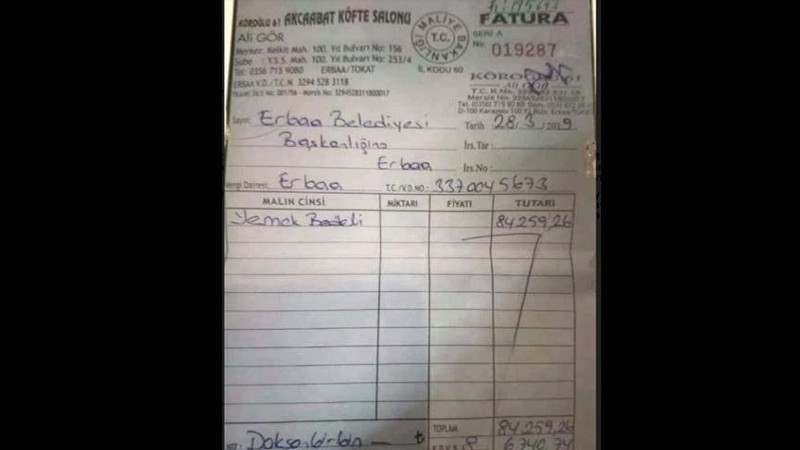 KÖROĞLU 61 AKCAABAT KÖFTE SALONU
Ali GÖR
Merkez: Kelkit Mah. 100. Yıl Bulvarı No: 156
Şube : Y.S.S. Mah. 100. Yıl Bulvarı No: 253/4
Tel: 0356 715 9080 ERBAA/TOKAT
ERBAA V.D./T.C.N. 3294 528 3118
MALİYE BAKANLIĞI
T.C.
İL KODU 60
FATURA
SERİ A
No: 019287
Ali GÖR
Sayın, Erbaa Belediyesi
Başkanlığına
Erbaa
Tarih 28/3/2019
İrs.Tar :
İrs.No :
Vergi Dairesi: Erbaa T.C./V.D.NO.: 3370045673
MALIN CİNSİ MİKTARI FİYATI TUTARI
Yemek Bedeli 84 259,26
TOPLAM 84 259,26
Doksanbirbin ₺
8 6.740,74